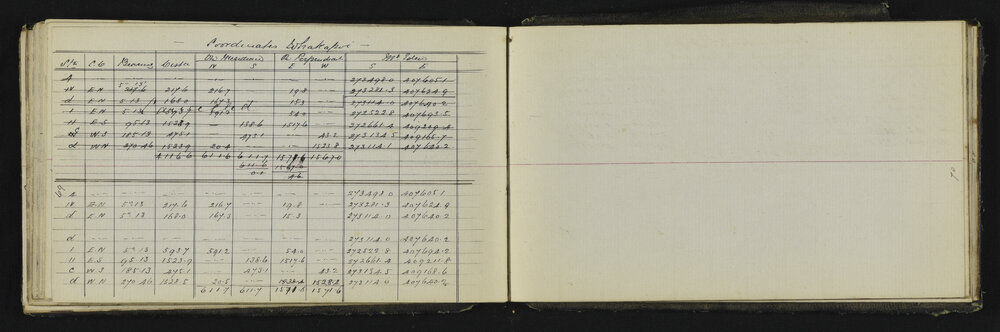 — Coordinates Whakapoi —
On Meridian On Perpendicular Mt Eden
Bearing N S E W S E
A — — — — — — — 273498.0 407605.1
217.6 216.7 — 19.8 — 273281.3 407624.9
d E N 5.13 168.0 167.3 — 15.3 — 273114.0 407640.2
I E N 5.13 593.7 591.2 54.0 — 272522.8
II E S 95.13 1523.9 — 138.6 1517.6 — 272661.4
W S 185.13 475.1 — 473.1 — 43.2 273134.5 409168.7
d W N 270.46 1523.9 20.4 — — 1523.8 273114.1 407640.2
4116.6 611.6 611.9 1571.6 1567.0
611.6 1567.0
0.3 4.6
69
A — — — — — — — 273498.0 407605.1
IV E N 5°13 217.6 216.7 — 19.8 — 273281.3 407624.9
d E N 5°13 168.0 167.3 — 15.3 — 273114.0 407640.2
d — — — — — — — 273114.0 407640.2
I E N 5°13 593.7 591.2 — 54.0 — 272522.8 407694.2
II E S 95.13 1523.9 — 138.6 1517.6 — 272661.4 409211.8
C W S 185.13 475.1 — 473.1 — 43.2 273134.5 409168.6
d W N 270.46 1528.5 20.5 — — 1528.2 273114.0 407640.4
611.7 611.7 1571.6 1571.6
70